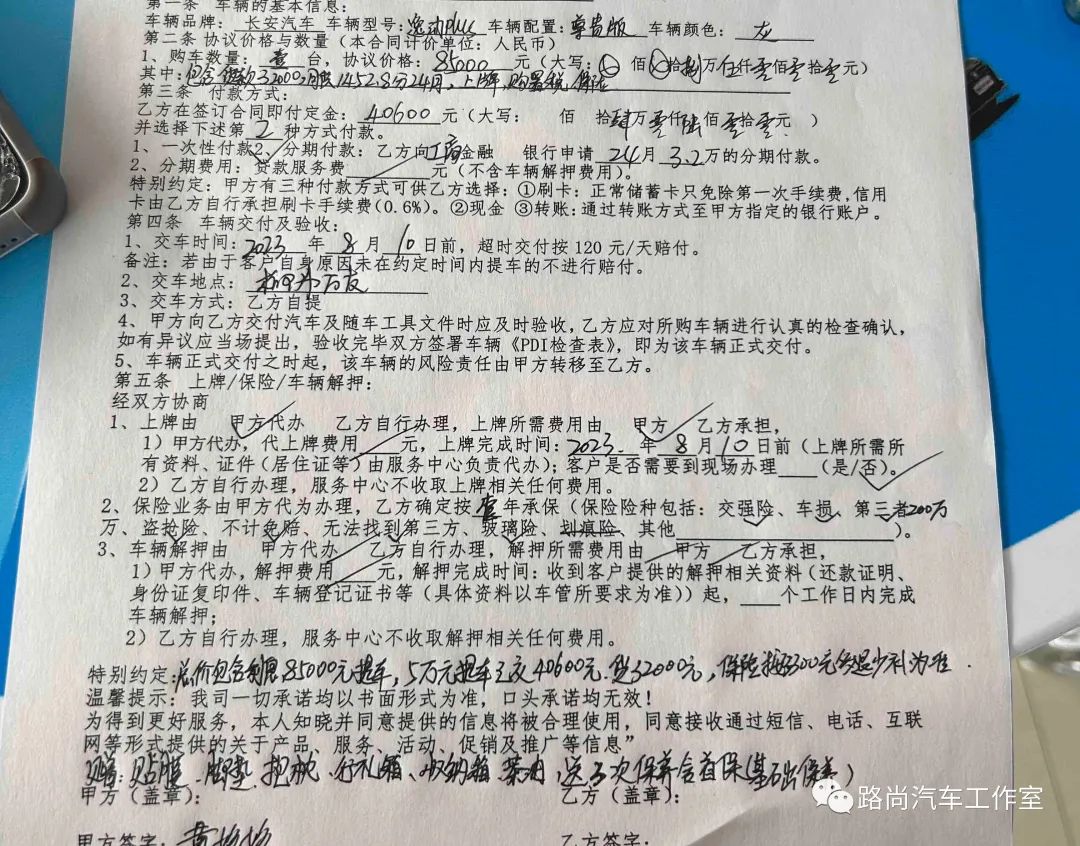 第一条 车辆的基本信息:
车辆品牌: 长安汽车 车辆型号:逸动plus 车辆配置:尊贵版 车辆颜色:
第二条 协议价格与数量(本合同计价单位:人民币)
1、购车数量: 壹 台,协议价格: 85000 元(大写: 佰 拾捌万伍仟零佰零拾零元)
其中:包含贷款32000,月供1452.8分24月,上牌,购置税,保险
第三条 付款方式:
乙方在签订合同即付定金: 40600 元(大写: 佰 拾肆万零仟陆佰零拾零元 )
并选择下述第 2 种方式付款。
1、一次性付款2、分期付款:乙方向工商金融 银行申请 24月 3.2万的分期付款。
2、分期费用:贷款服务费 元(不含车辆解押费用)。
特别约定:甲方有三种付款方式可供乙方选择:①刷卡:正常储蓄卡只免除第一次手续费,信用
卡由乙方自行承担刷卡手续费(0.6%)。②现金 ③转账:通过转账方式至甲方指定的银行账户。
第四条 车辆交付及验收:
1、交车时间:2023 年 8 月 10 日前,超时交付按 120 元/天赔付。
备注:若由于客户自身原因未在约定时间内提车的不进行赔付。
2、交车地点:
3、交车方式:乙方自提
4、甲方向乙方交付汽车及随车工具文件时应及时验收,乙方应对所购车辆进行认真的检查确认,
如有异议应当场提出,验收完毕双方签署车辆《PDI检查表》,即为该车辆正式交付。
5、车辆正式交付之时起,该车辆的风险责任由甲方转移至乙方。
第五条 上牌/保险/车辆解押:
经双方协商
1、上牌由 甲方代办 乙方自行办理,上牌所需费用由 甲方 乙方承担,
1)甲方代办,代上牌费用 元,上牌完成时间:2023. 年 8 月 10 日前(上牌所需所
有资料、证件(居住证等)由服务中心负责代办);客户是否需要到现场办理 (是/否)。
2)乙方自行办理,服务中心不收取上牌相关任何费用。
2、保险业务由甲方代为办理,乙方确定按 壹 年承保(保险险种包括:交强险、车损、第三者200万
万、盗抢险、不计免赔、无法找到第三方、玻璃险、划痕险、其他 )。
3、车辆解押由 甲方代办 乙方自行办理,解押所需费用由 甲方 乙方承担,
1)甲方代办,解押费用 元,解押完成时间:收到客户提供的解押相关资料(还款证明、
身份证复印件、车辆登记证书等(具体资料以车管所要求为准))起, 个工作日内完成
车辆解押;
2)乙方自行办理,服务中心不收取解押相关任何费用。
特别约定:总价包含利息85000元提车,5万元提车 40600元.贷32000元,保险按 300元多退少补为准.
温馨提示:我司一切承诺均以书面形式为准,口头承诺均无效!
为得到更好服务,本人知晓并同意提供的信息将被合理使用,同意接收通过短信、电话、互联
网等形式提供的关于产品、服务、活动、促销及推广等信息”
贴膜.脚垫.把套.行礼箱、收纳箱. 送3次保养含首保(基础保养)
甲方(盖章): 乙方(盖章):
甲方签字: 乙方签字:
路尚汽车工作室